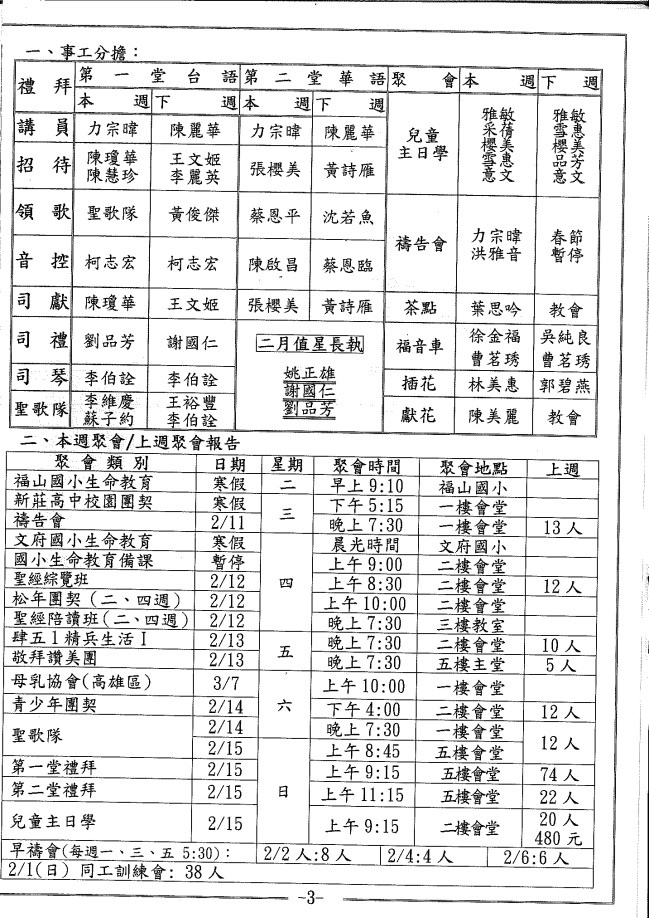 一、事工分擔：
禮拜 第一堂台語 第二堂華語 聚會 本週 下週
本週 下週 本週 下週
講員 力宗暐 陳麗華 力宗暐 陳麗華 兒童主日學 雅敏 采蒨 櫻美 雪惠 意文 雅敏 雪惠 櫻美 品芳 意文
招待 陳瓊華 陳慧珍 王文姬 李麗英 張櫻美 黃詩雁
領歌 聖歌隊 黃俊傑 蔡恩平 沈若魚 禱告會 力宗暐 洪雅音 春節暫停
音控 柯志宏 柯志宏 陳啟昌 蔡恩臨
司獻 陳瓊華 王文姬 張櫻美 黃詩雁 茶點 葉思吟 教會
司禮 劉品芳 謝國仁 二月值星長執 福音車 徐金福 曹茗琇 吳純良 曹茗琇
姚正雄
謝國仁
劉品芳
司琴 李伯詮 李伯詮 插花 林美惠 郭碧燕
聖歌隊 李維慶 蘇子約 王裕豐 李伯詮 獻花 陳美麗 教會
二、本週聚會/上週聚會報告
聚會類別 日期 星期 聚會時間 聚會地點 上週
福山國小生命教育 寒假 二 早上9:10 福山國小
新莊高中校園團契 寒假 三 下午5:15 一樓會堂
禱告會 2/11 晚上7:30 一樓會堂 13人
文府國小生命教育 寒假 四 晨光時間 文府國小
國小生命教育備課 暫停 上午9:00 二樓會堂
聖經綜覽班 2/12 上午8:30 二樓會堂 12人
松年團契(二、四週) 2/12 上午10:00 二樓會堂
聖經陪讀班(二、四週) 2/12 晚上7:30 三樓教室
肆五1精兵生活Ⅰ 2/13 五 晚上7:30 二樓會堂 10人
敬拜讚美團 2/13 晚上7:30 五樓主堂 5人
母乳協會(高雄區) 3/7 六 上午10:00 一樓會堂
青少年團契 2/14 下午4:00 二樓會堂 12人
聖歌隊 2/14 晚上7:30 一樓會堂 12人
2/15 日 上午8:45 五樓會堂
第一堂禮拜 2/15 上午9:15 五樓會堂 74人
第二堂禮拜 2/15 上午11:15 五樓會堂 22人
兒童主日學 2/15 上午9:15 二樓會堂 20人 480元
早禱會(每週一、三、五 5:30)： 2/2人:8人 2/4:4人 2/6:6人
2/1(日) 同工訓練會: 38人
-3-